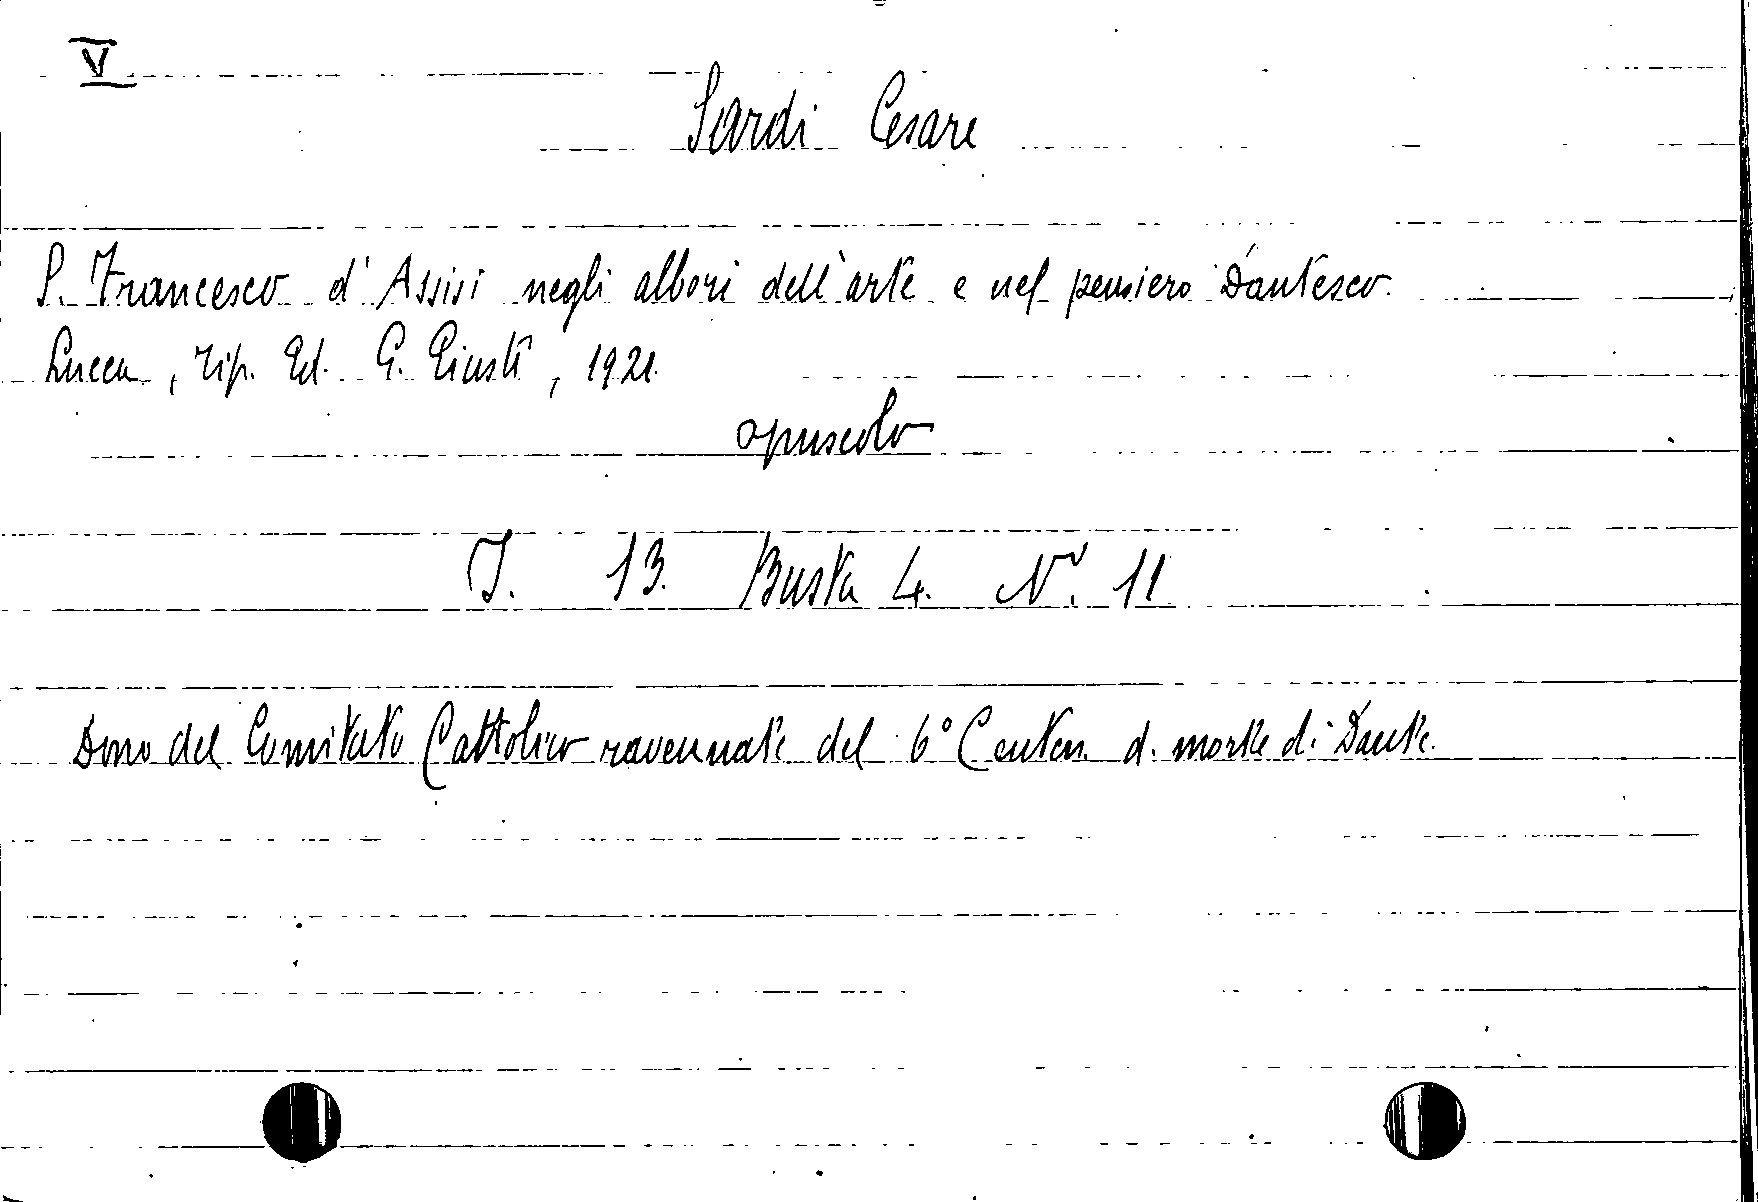 V
Sardi Cesare
S. Francesco d'Assisi negli albori dell'arte e nel pensiero Dantesco.
Lucca, Tip. Ed. G. Giusti, 1921.
opuscolo
I. 13. Busta 4. N°. 11
Dono del Comitato Cattolico ravennate del 6° Centen. d. morte di Dante.